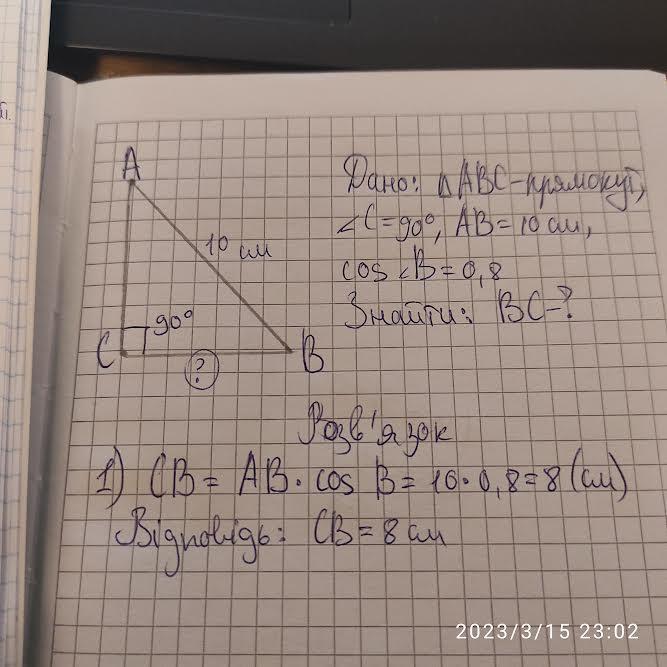 A
10 см
90°
C
?
B
Дано: △ABC-прямокут,
∠C=90°, AB=10 см,
cos∠B=0,8
Знайти: BC-?
Розв'язок
1) CB= AB·cos B=10·0,8=8 (см)
Відповідь: CB=8 см
2023/3/15 23:02